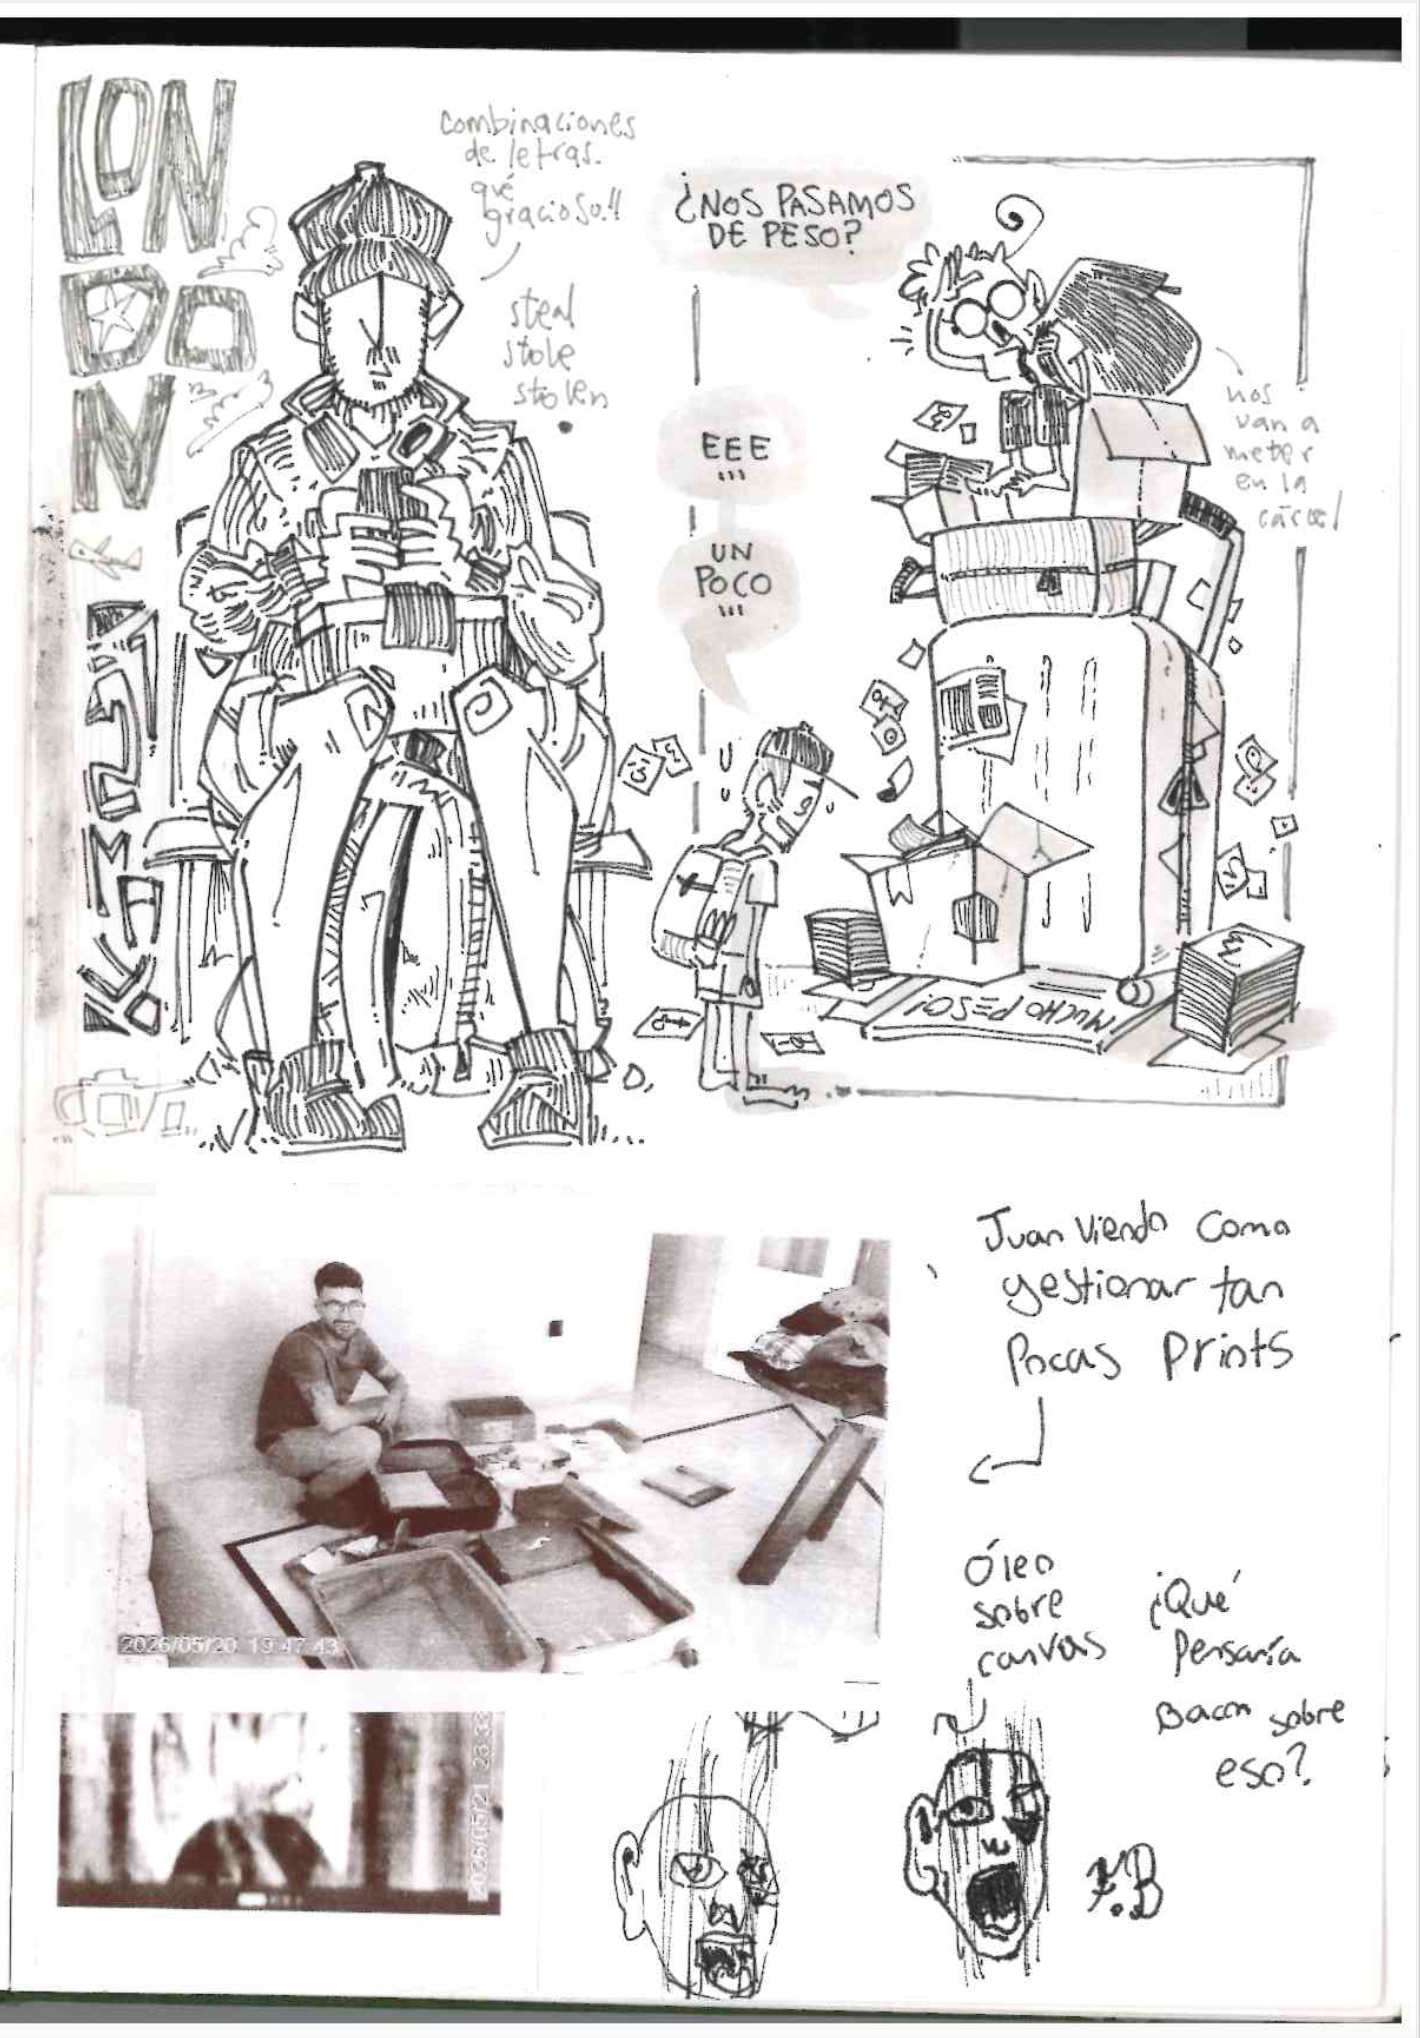 LON
DO
N
combinaciones
de letras.
qué
gracioso!!
steal
stole
stolen
¿NOS PASAMOS
DE PESO?
EEE
...
UN
POCO
...
nos
van a
meter
en la
cárcel
¡MUCHO PESO!
Juan viendo como
gestionar tan
Pocas prints
2026/05/20 19:47:43
Óleo
sobre
canvas
¿Qué
Pensaría
Bacon sobre
eso?
2026/05/21 23:33
F.B